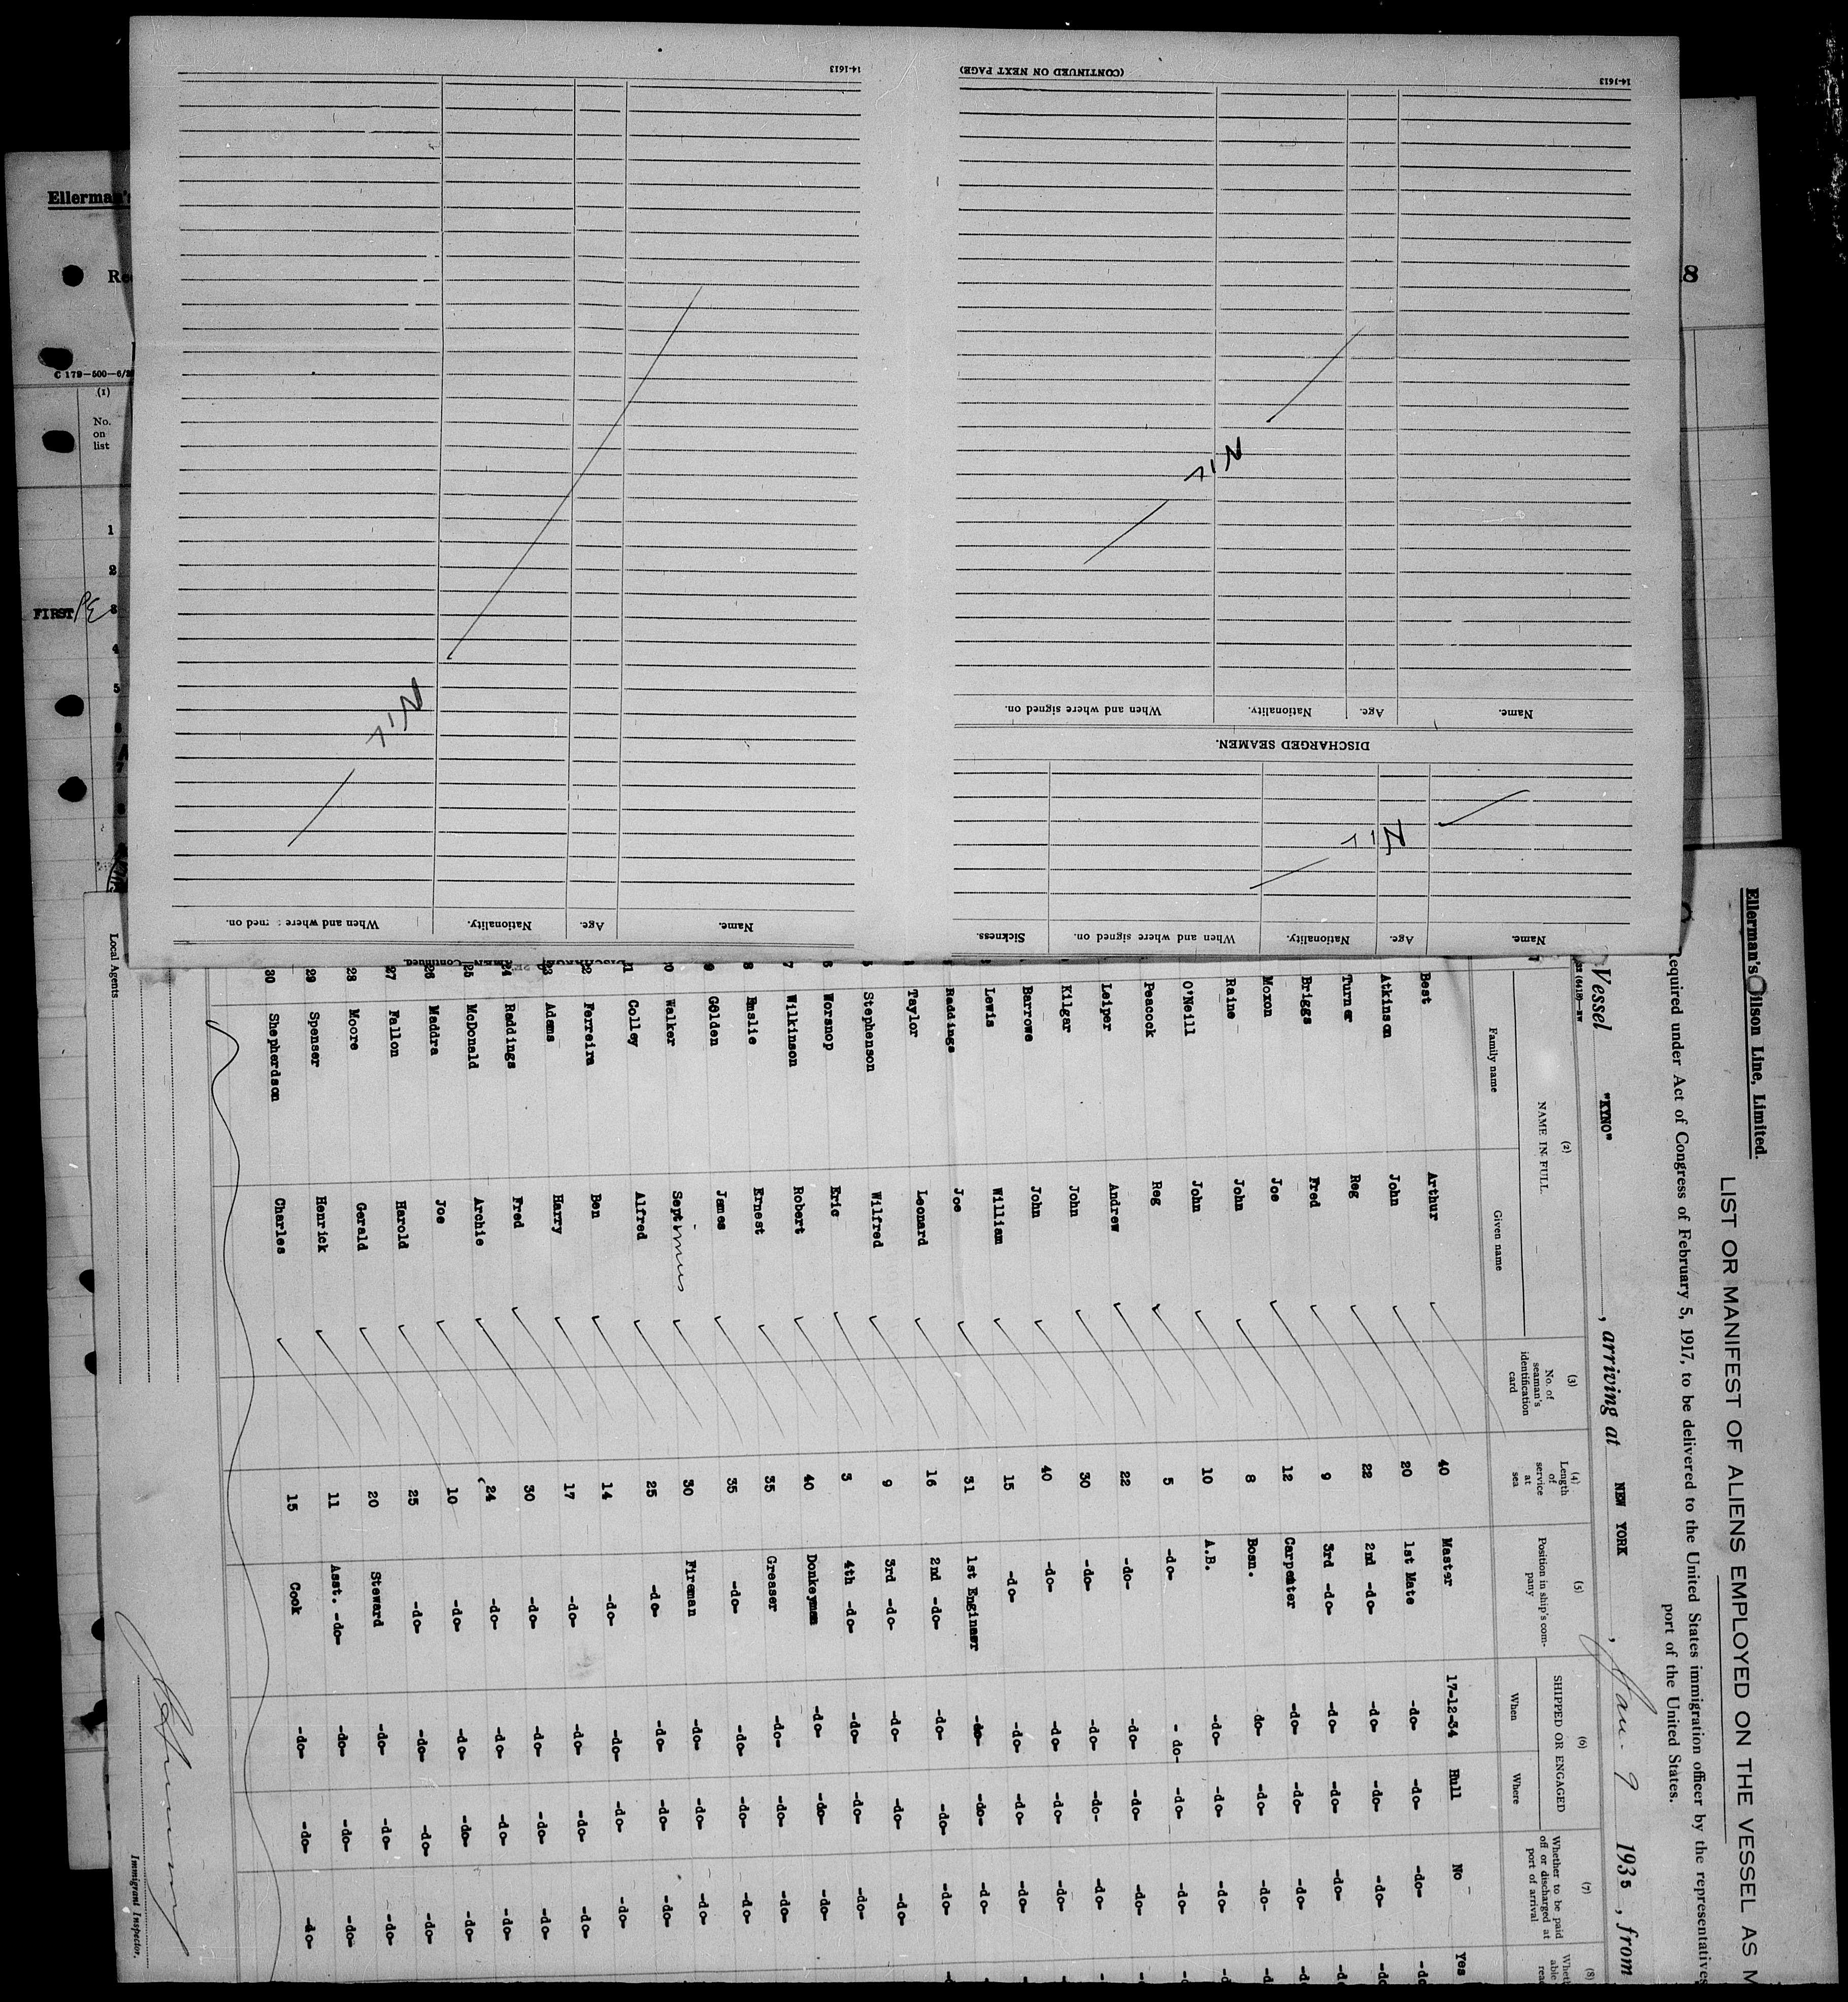 Ellerman's Wilson Line, Limited.
LIST OR MANIFEST OF ALIENS EMPLOYED ON THE VESSEL AS M
required under Act of Congress of February 5, 1917, to be delivered to the United States immigration officer by the representatives
port of the United States.
Vessel "KYNO" , arriving at NEW YORK , Jan. 9 1935 , from
(2) (3) (4) (5) (6) (7) (8)
NAME IN FULL
Family name Given name
No. of seaman's identification card
Length of service at sea
Position in ship's company
SHIPPED OR ENGAGED
When Where
Whether to be paid off or discharged at port of arrival
Best Arthur 40 Master 17-12-34 Hull No Yes
Atkinson John 20 1st Mate -do- -do- -do-
Turner Reg 22 2nd -do- -do- -do- -do-
Briggs Fred 9 3rd -do- -do- -do- -do-
Moxon Joe 12 Carpenter -do- -do- -do-
Raine John 8 Bosn. do- -do- -do-
O'Neill John 10 A.B. -do- -do- -do-
Peacock Reg 5 -do- - do- -do- -do-
Leiper Andrew 22 -do- -do- -do- -do-
Kilgar John 30 -do- -do- -do- -do-
Barrowe John 40 -do- -do- -do- -do-
Lewis William 15 -do- -do- -do- -do-
Raddings Joe 31 1st Engineer -do- -do- -do-
Taylor Leonard 16 2nd -do- -do- -do- -do-
5 Stephenson Wilfred 9 3rd -do- -do- -do- -do-
6 Worsnop Eric 3 4th -do- -do- -do- -do-
7 Wilkinson Robert 40 Donkeyman -do- -do- -do-
8 Emslie Ernest 35 Greaser -do- -do- -do-
9 Golden James 35 -do- -do- -do- -do-
20 Walker Septimus 30 Fireman -do- -do- -do-
21 Colley Alfred 25 -do- -do- -do- -do-
22 Ferreira Ben 14 -do- -do- -do- -do-
23 Adams Harry 17 -do- -do- -do- -do-
24 Raddings Fred 30 -do- -do- -do- -do-
25 McDonald Archie 24 -do- -do- -do- -do-
26 Maddra Joe 10 -do- -do- -do- -do-
27 Fallon Harold 25 -do- -do- -do- -do-
28 Moore Gerald 20 Steward -do- -do- -do-
29 Spenser Henrick 11 Asst. -do- -do- -do- -do-
30 Shepherdson Charles 15 Cook -do- -do- -do-
Local Agents
Immigrant Inspector.
Name. Age. Nationality. When and where signed on. Sickness.
Nil
DISCHARGED SEAMEN.
Name. Age. Nationality. When and where signed on.
Nil
(CONTINUED ON NEXT PAGE)
14-1613
Name. Age. Nationality. When and where signed on.
Nil
14-1613
Ellerman's
C 179-500-6/
(1)
No.
on
list
1
2
FIRST 3
4
5
8